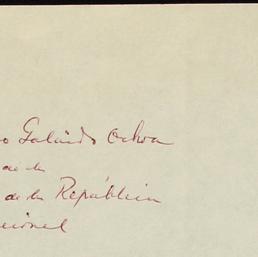 o Galindo Ochoa
de la
de la República
cional